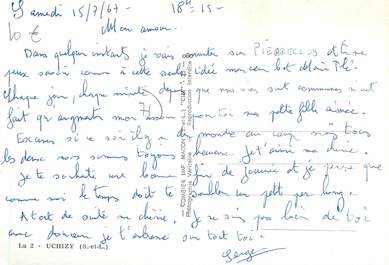 Samedi 15/7/67 - 18H 15 -
10 €
Mon amour.
Dans quelques instants je vais monter sur PIERRECLOS et Ène
peux savoir comme à cette seule idée mon cœur bat
Chaque jour, chaque minute depuis que nos vies sont communes n'ont
fait qu'augmenter mon amour pour toi ma petite fille aimée.
Excuses si ce soir il y a du monde au car nous tous
les deux nous serons toujours heureux. Je t'aime ma chérie.
Je te souhaite une bonne fin de journée et je pense que
comme moi le temps doit te sembler un petit peu long.
A tout de suite ma chérie. Je ne suis pas loin de toi
avec douceur je t'adresse un tout toi.
Serge
71
COMBIER IMP. MACON (S.-et-L.) "CIM"
Photographie Véritable Reproduction Interdite
Lu 2 - UCHIZY (S.-et-L.)